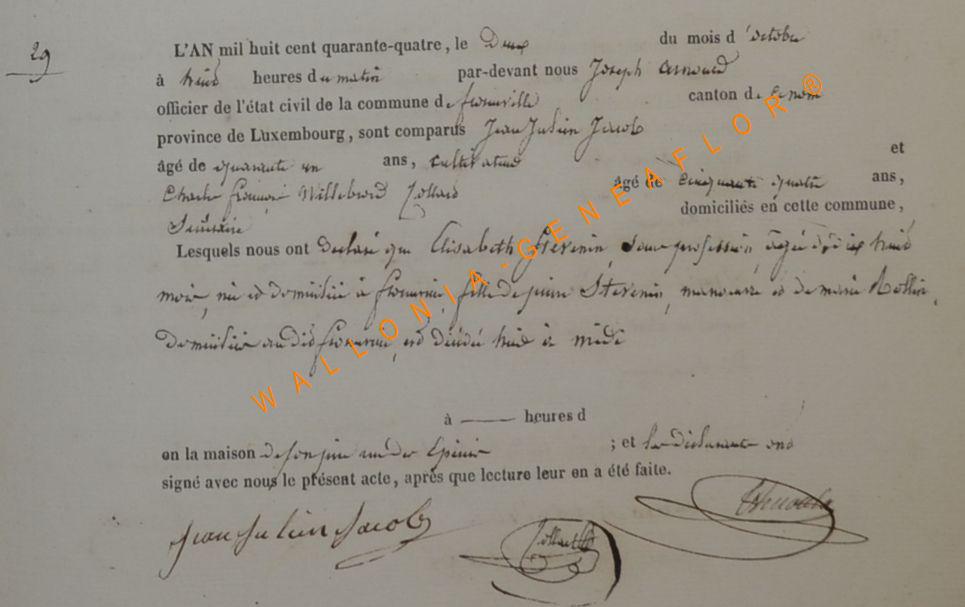 29
L'AN mil huit cent quarante-quatre, le Deux du mois d'octobre
à huit heures du matin par-devant nous Joseph Arnould
officier de l'état civil de la commune de canton de
province de Luxembourg, sont comparus Jean Julien Jacob
âgé de quarante un ans, cultivateur et
Charles François Willebrord Collard âgé de cinquante quatre ans,
domiciliés en cette commune,
Lesquels nous ont déclaré que Elisabeth Stevenin, sans profession, âgée de dix huit
mois, née et domiciliée à fille de pierre Stevenin, manoeuvre et de marie Rollin,
domiciliés audit est décédée hier à midi
à heures d
en la maison de son père rue des ; et les déclarants ont
signé avec nous le présent acte, après que lecture leur en a été faite.
Jean Julien Jacob Collard Arnould
WALLONIA-GENEAFLOR®